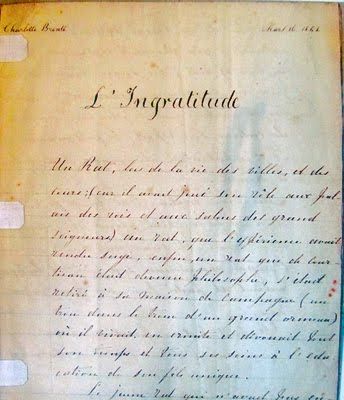 Charlotte Brontë Mars 16 1842
L'Ingratitude
Un Rat, las de la vie des villes, et des
cours; (car il avait joué son rôle aux Pal-
ais des rois et aux salons des grand
seigneurs) un rat, que l'expérience avait
rendu sage, enfin un rat qui de cour-
tisan était devenu philosophe, s'était
retiré à sa maison de Campagne (un
trou dans le tronc d'un grand ormeau)
où il vivait en ermite et dévouait tout
son temps et tous ses soins à l'edu-
cation de son fils unique.
Le jeune rat qui n'avait pas en-